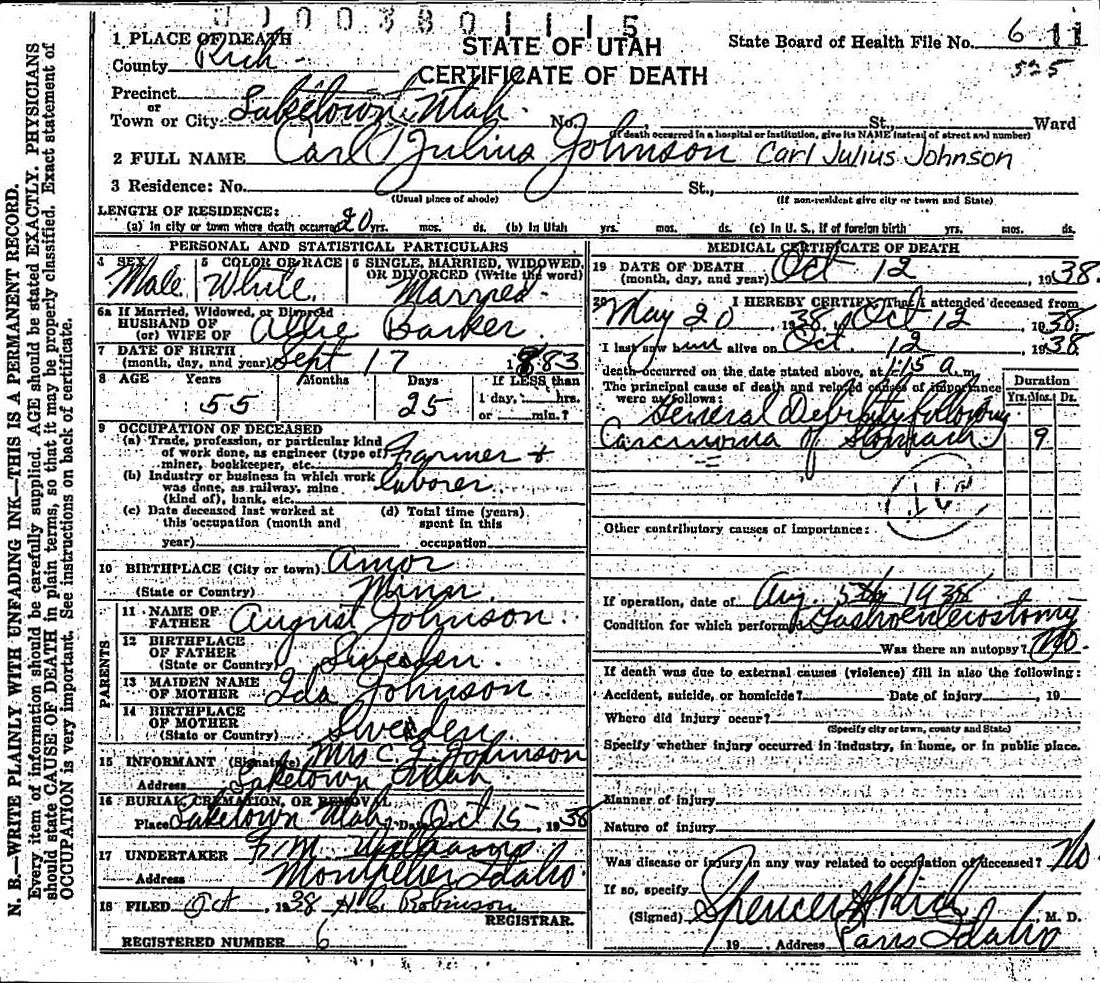 U 1 0 0 3 8 0 1 1 1 5
1 PLACE OF DEATH
County Rich
STATE OF UTAH
CERTIFICATE OF DEATH
State Board of Health File No. 6 11
525
Precinct
or
Town or City Laketown, Utah. No. St., Ward
(If death occurred in a hospital or institution, give its NAME instead of street and number)
2 FULL NAME Carl Julius Johnson Carl Julius Johnson
3 Residence: No. St.,
(Usual place of abode) (If non-resident give city or town and State)
LENGTH OF RESIDENCE:
(a) In city or town where death occurred 20 yrs. mos. ds. (b) In Utah yrs. mos. ds. (c) In U. S., if of foreign birth yrs. mos. ds.
PERSONAL AND STATISTICAL PARTICULARS
4 SEX Male
5 COLOR OR RACE White
6 SINGLE, MARRIED, WIDOWED, OR DIVORCED (Write the word)
Married
6a If Married, Widowed, or Divorced
HUSBAND OF
(or) WIFE OF Allie Barker
7 DATE OF BIRTH
(month, day, and year) Sept 17 1883
8 AGE Years Months Days If LESS than
55 25 1 day, hrs.
or min.?
9 OCCUPATION OF DECEASED
(a) Trade, profession, or particular kind
of work done, as engineer (type of) Farmer +
miner, bookkeeper, etc.
(b) Industry or business in which work laborer
was done, as railway, mine
(kind of), bank, etc.
(c) Date deceased last worked at
this occupation (month and
year)
(d) Total time (years)
spent in this
occupation
10 BIRTHPLACE (City or town) Amor
(State or Country) Minn.
PARENTS
11 NAME OF
FATHER August Johnson.
12 BIRTHPLACE
OF FATHER
(State or Country) Sweden.
13 MAIDEN NAME
OF MOTHER Ida Johnson.
14 BIRTHPLACE
OF MOTHER
(State or Country) Sweden.
15 INFORMANT (Signature) Mrs C. J. Johnson
Address Laketown Utah.
16 BURIAL, CREMATION, OR REMOVAL
Place Laketown Utah. Date Oct 15, 1938
17 UNDERTAKER F. M. Williams
Address Montpelier Idaho.
18 FILED Oct , 1938 H. C. Robinson
REGISTRAR.
REGISTERED NUMBER 6
MEDICAL CERTIFICATE OF DEATH
19 DATE OF DEATH
(month, day, and year) Oct 12, 1938.
20 I HEREBY CERTIFY, That I attended deceased from
May 20, 1938, Oct 12, 1938.
I last saw him alive on Oct. 12, 1938
death occurred on the date stated above, at 1:15 a. m.
The principal cause of death and related causes of importance
were as follows:
Duration
Yrs. Mos. Ds.
General Debility following
Carcinoma of Stomach 9
Other contributory causes of importance:
If operation, date of Aug. 5th 1938
Condition for which performed Gastroenterostomy
Was there an autopsy? No.
If death was due to external causes (violence) fill in also the following:
Accident, suicide, or homicide? Date of injury , 19
Where did injury occur?
(Specify city or town, county and State)
Specify whether injury occurred in industry, in home, or in public place.
Manner of injury
Nature of injury
Was disease or injury in any way related to occupation of deceased? No
If so, specify
(Signed) Spencer H Rich, M. D.
19 Address Paris Idaho
N. B.—WRITE PLAINLY WITH UNFADING INK—THIS IS A PERMANENT RECORD.
Every item of information should be carefully supplied. AGE should be stated EXACTLY. PHYSICIANS
should state CAUSE OF DEATH in plain terms, so that it may be properly classified. Exact statement of
OCCUPATION is very important. See instructions on back of certificate.